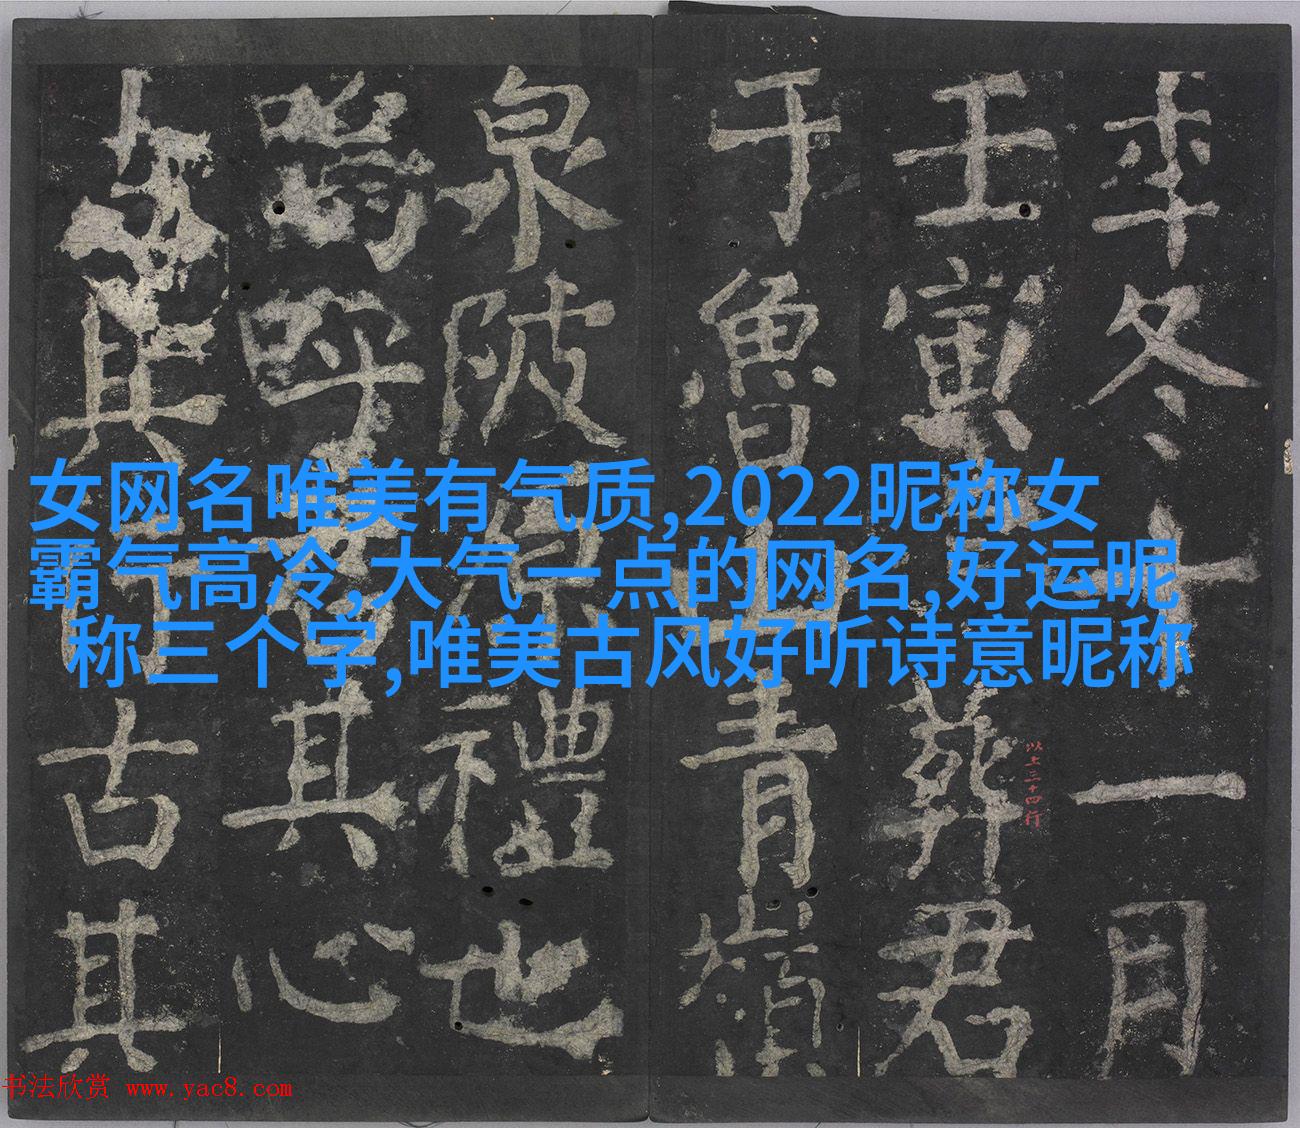 女网名唯美有气质,2022昵称女
霸气高冷,大气一点的网名,好运昵
称三个字,唯美古风好听诗意昵称
年冬十一月
壬寅葬君
以上三十四行
于魯山青嶺
泉陂原禮也
嗚呼其心
其古其
书法欣赏 www.yac8.com